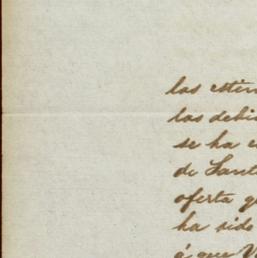 las estim
las debi
se ha e
de Sant
oferta q
ha sido
á que V